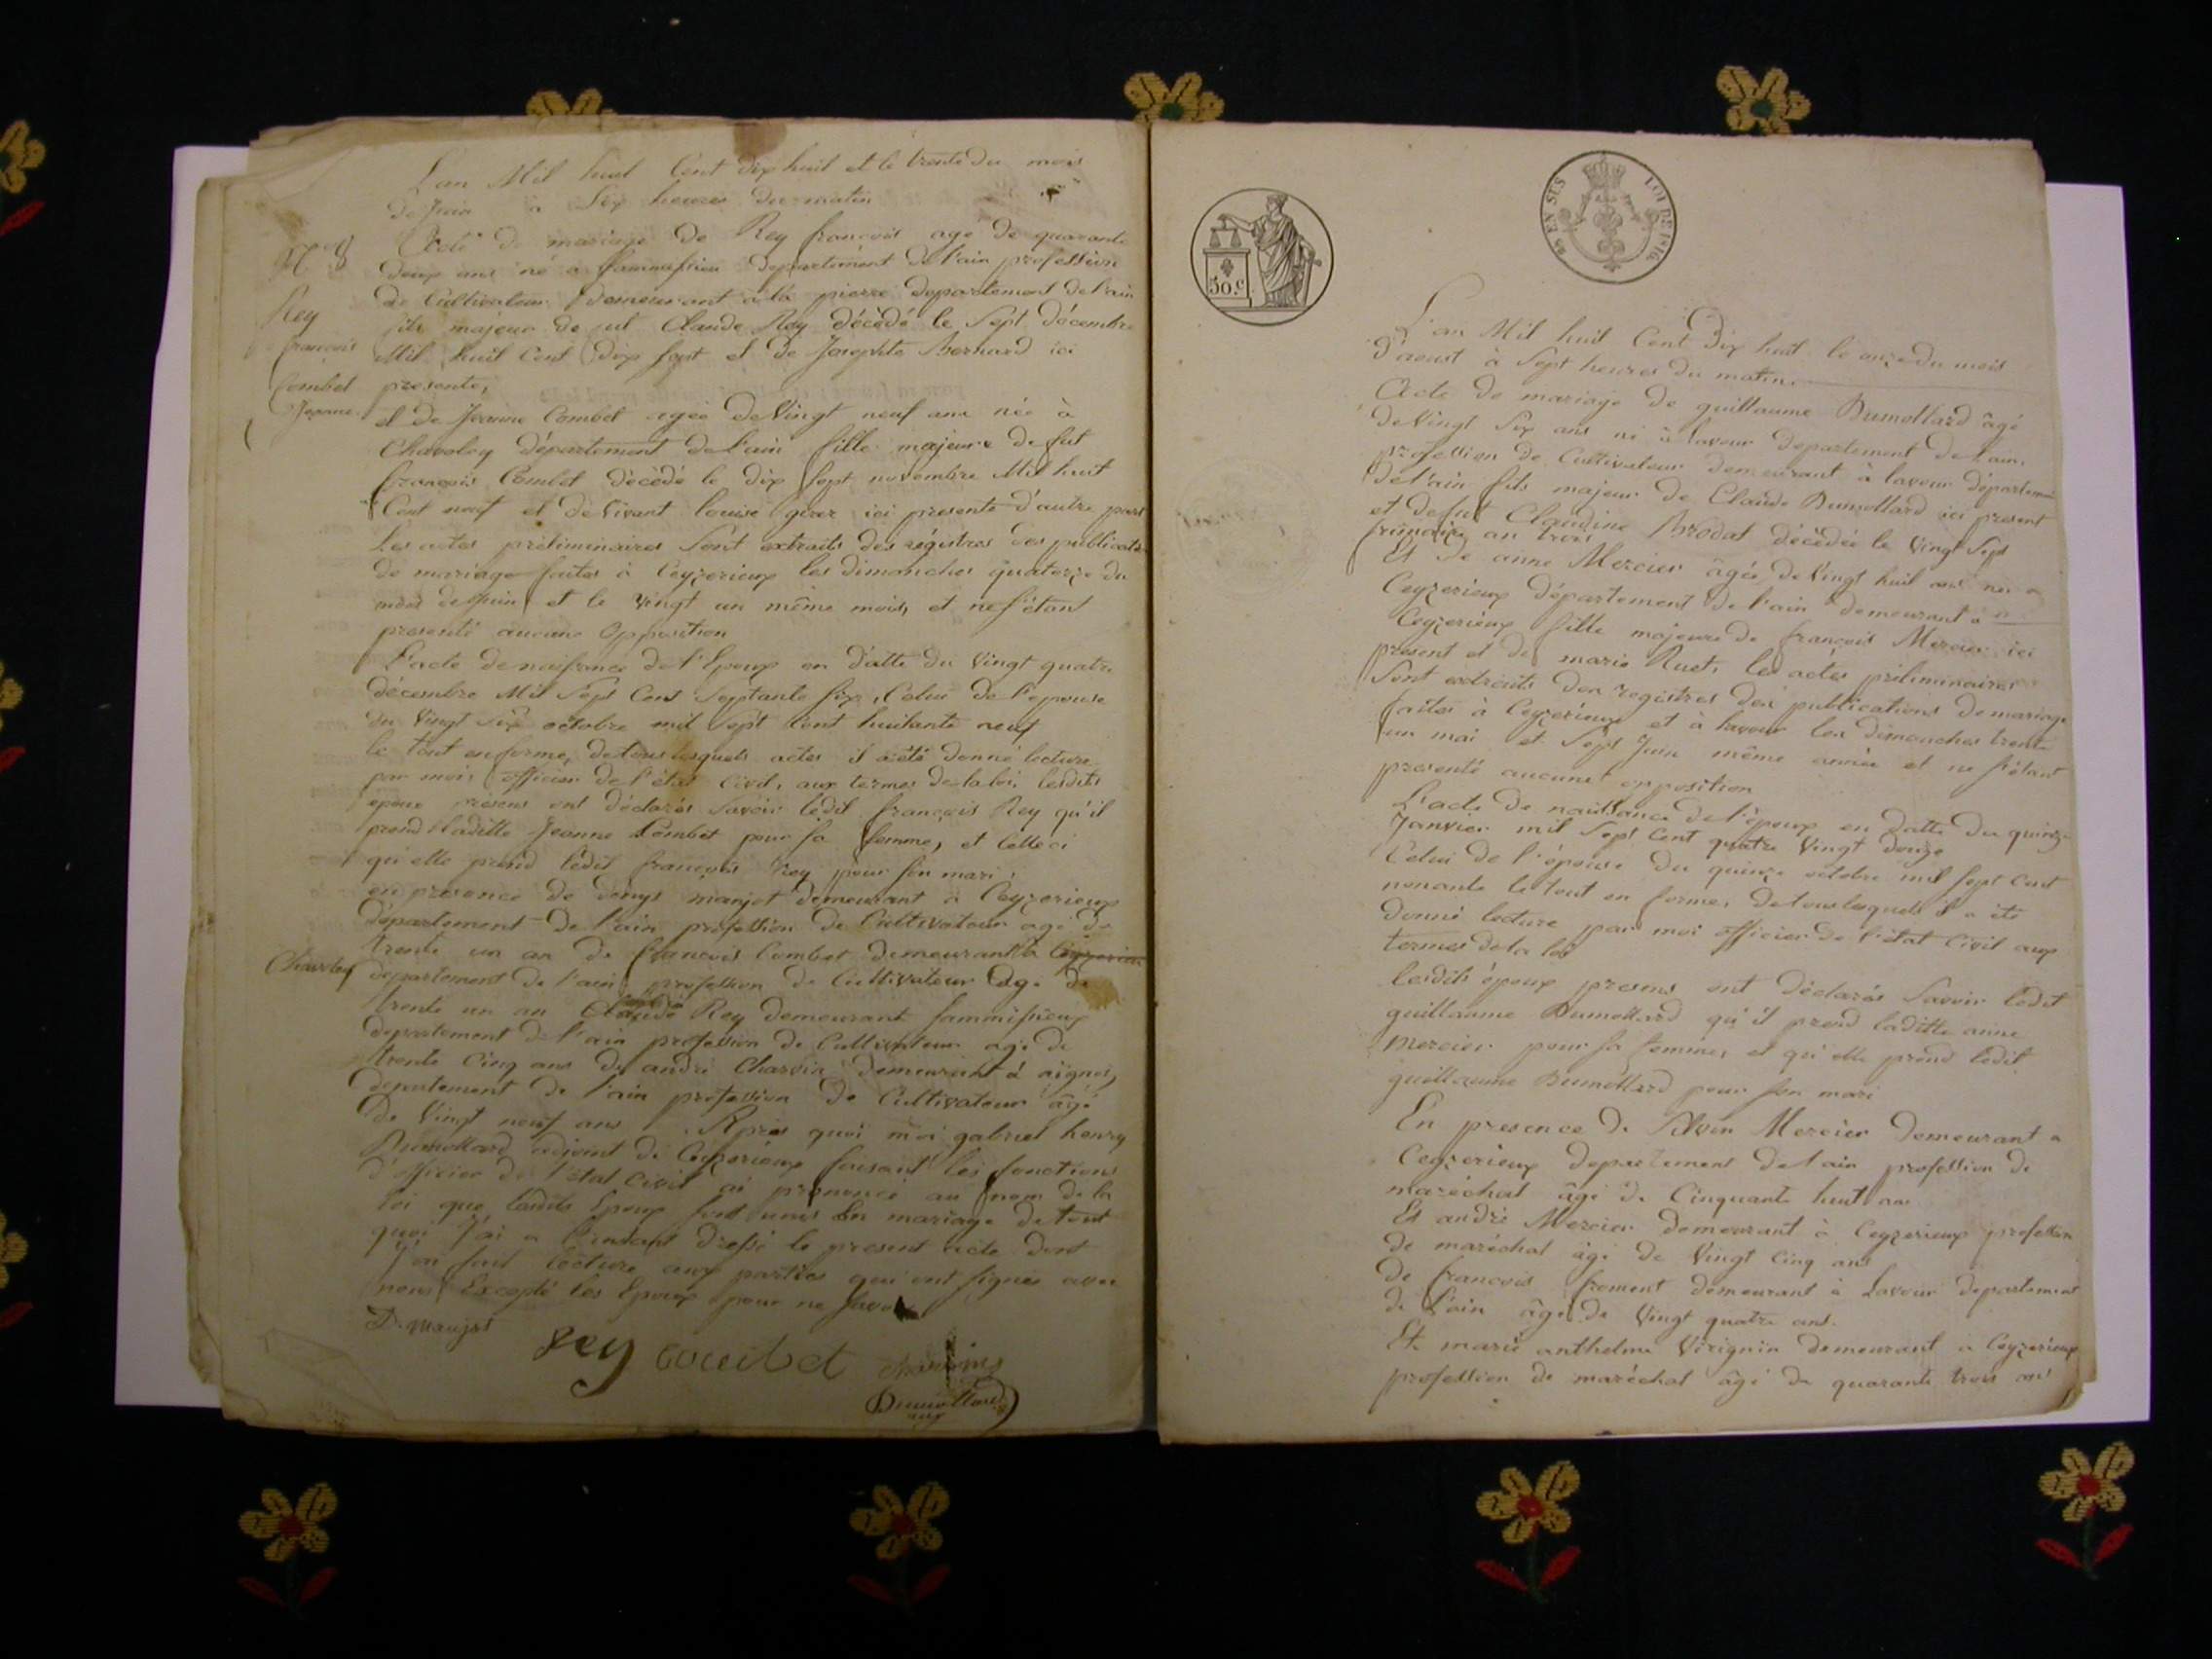 L'an Mil huit Cent dix huit et le trente du mois
de Juin à Six heures du matin
Acte de mariage de Rey françois agé de quarante
deux ans né a département de l'ain profession
de Cultivateur demeurant à la pierre département de l'ain
fils majeur de fut Claude Rey décédé le Sept décembre
Mil huit Cent dix sept et de Josephte Bernard ici
presente,
N° 8
Rey
françois
Combet
Jeanne
et de Jeanne Combet agée de Vingt neuf ans née à
Chavoley département de l'ain fille majeure de fut
françois Combet décédé le dix Sept novembre Mil huit
Cent neuf et de Vivant louise ici presente d'autre part
Les actes préliminaires Sont extraits des régistres des publications
de mariage faites à Ceyzerieux les dimanches quatorze du
mois de Juin et le vingt un même mois, et ne s'étant
presenté aucune Opposition
L'acte de naissance de l'Epoux en datte du Vingt quatre
décembre Mil Sept Cent Septante six, Celui de l'epouse
du Vingt Six octobre mil Sept Cent huitante neuf
le tout en forme, de tous lesquels actes il a été donné lecture
par moi officier de l'état Civil, aux termes de la loi, lesdits
epoux présens ont déclarés Savoir ledit françois Rey qu'il
prend laditte Jeanne Combet pour sa femme, et Celle ci
qu'elle prend ledit françois Rey pour son mari,
en presence de denys manjot demeurant à Ceyzerieux
département de l'ain profession de Cultivateur agé de
trente un an de françois Combet demeurant à Ceyzerieu
Chavoley
département de l'ain profession de Cultivateur agé de
trente un an Claude Rey demeurant
département de l'ain profession de Cultivateur agé de
trente Cinq ans de andré Charvin demeurant à aignoz,
département de l'ain profession de Cultivateur âgé
de Vingt neuf ans. Après quoi moi gabriel henry
Dumollard adjoint de Ceyzerieux faisant les fonctions
d'officier de l'état Civil ai prononcé au nom de la
loi que lesdits Epoux sont unis En mariage de tout
quoi J'ai a l'instant dressé le présent acte dont
J'ai fait lecture aux parties qui ont signés avec
nous Excepté les Epoux pour ne savoir
D. manjot
rey combet charvin
Dumollard
50 c
EN SUS
LOI DE 1816
L'an Mil huit Cent Dix huit le onze du mois
d'aoust à Sept heures du matin.
Acte de mariage de guillaume Dumollard âgé
de Vingt Six ans né à lavour département de l'ain,
profession de Cultivateur demeurant à lavour département
de l'ain fils majeur de Claude Dumollard ici present
et de fut Claudine Brodat décédée le Vingt Sept
frimaire an trois
Et de anne Mercier âgée de Vingt huit ans née a
Ceyzerieux département de l'ain demeurant à
Ceyzerieux fille majeure de françois Mercier ici
présent et de marie Ruet, les actes préliminaires
Sont extraits des registres des publications de mariage
faites à Ceyzerieux et à lavour les dimanches trente
un mai et Sept Juin même année et ne s'étant
presenté aucune opposition
L'acte de naissance de l'époux en datte du quinze
Janvier mil Sept Cent quatre Vingt douze
Celui de l'épouse du quinze octobre mil sept cent
nonante le tout en forme, de tous lesquels il a été
donné lecture par moi officier de l'état Civil aux
termes de la loi
lesdits époux presens ont déclarés Savoir ledit
guillaume Dumollard qu'il prend laditte anne
Mercier pour sa femme, et qu'elle prend ledit
guillaume Dumollard pour son mari
En presence de Mercier demeurant a
Ceyzerieux departement de l'ain profession de
maréchal âgé de Cinquante huit ans
Et andré Mercier demeurant à Ceyzerieux profession
de maréchal âgé de Vingt Cinq ans
de françois froment demeurant à Lavour departement
de l'ain âgé de Vingt quatre ans.
Et marie anthelme Virignin demeurant a Ceyzerieux
profession de maréchal âgé de quarante trois ans